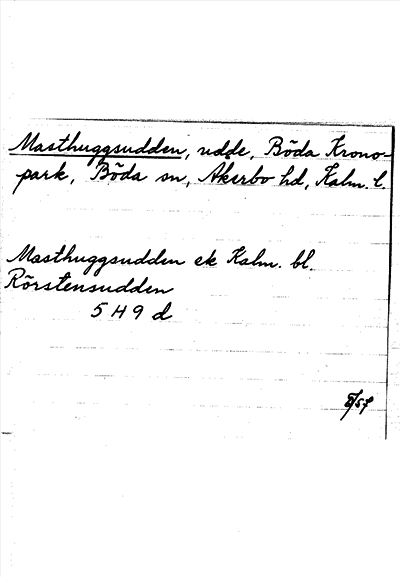 Masthuggsudden, udde, Böda Krono-
park, Böda sn, Åkerbo hd, Kalm. l.
Masthuggsudden ek Kalm. bl.
Rörstensudden
5 H 9 d
/57